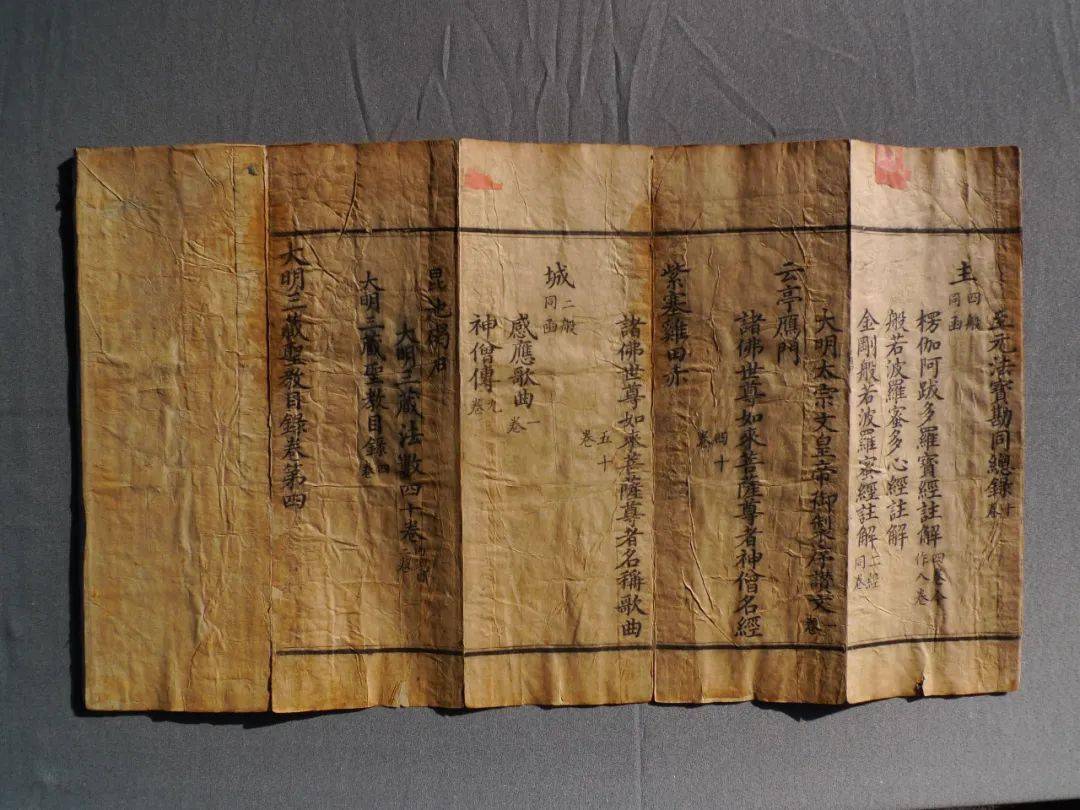 至元法寶勘同總錄十卷
主四般同函
楞伽阿跋多羅寶經註解四卷今作八卷
般若波羅蜜多心經註解
金剛般若波羅蜜經註解二經同卷
大明太宗文皇帝御製序讃文一卷
云亭鴈門
諸佛世尊如來菩薩尊者神僧名經四十卷
紫塞雞田赤
諸佛世尊如來菩薩尊者名稱歌曲五十卷
城二般同函
感應歌曲一卷
神僧傳九卷
昆池碣石
大明三藏法數四十卷
大明三藏聖教目錄四卷
大明三藏聖教目錄卷第四